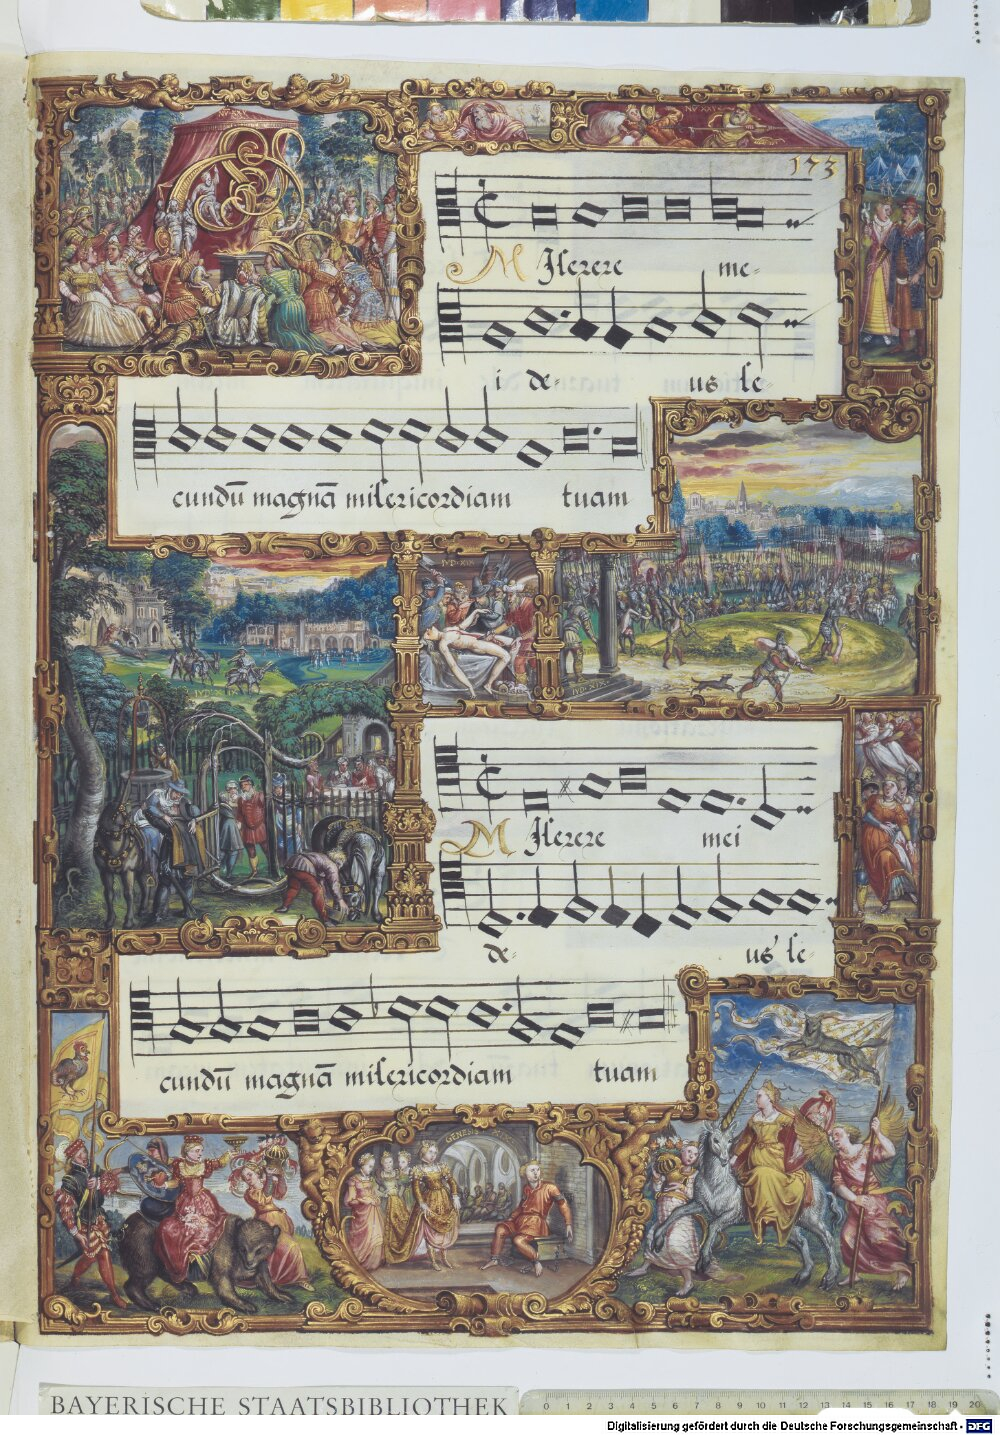 173
Miserere me-
i de- us se
cundū magnā misericordiam tuam
Miserere mei
de- us se-
cundū magnā misericordiam tuam
BAYERISCHE STAATSBIBLIOTHEK
0 1 2 3 4 5 6 7 8 9 10 11 12 13 14 15 16 17 18 19 20
Digitalisierung gefördert durch die Deutsche Forschungsgemeinschaft - DFG